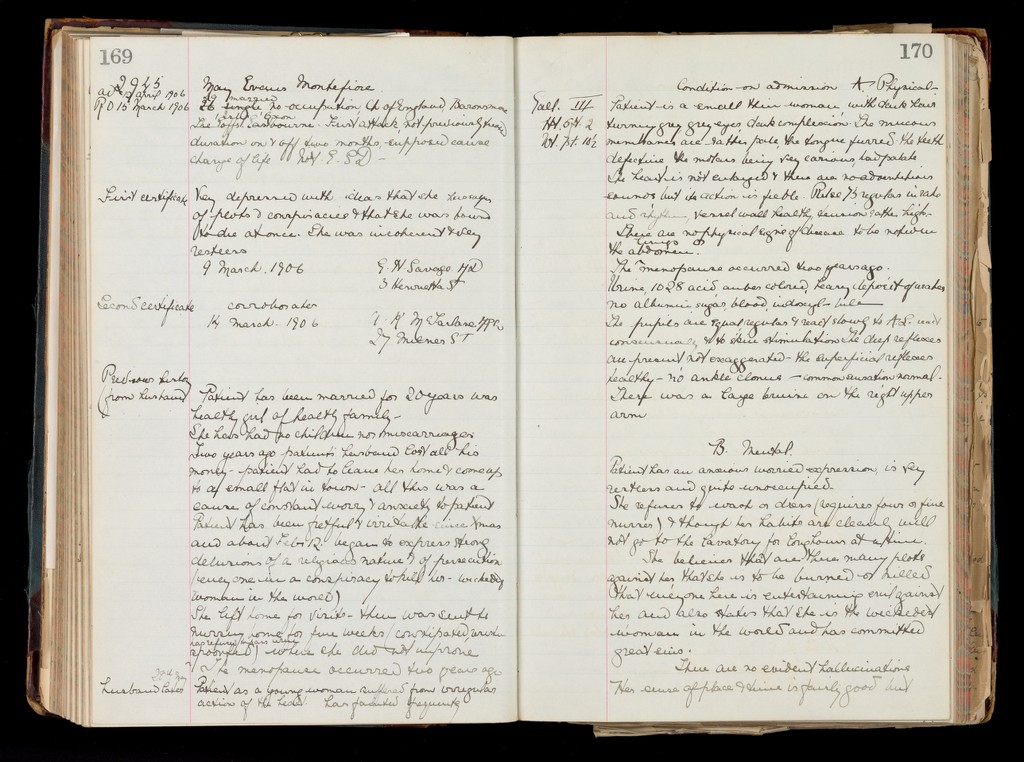 169
2945
adm April 1906
R O 15 March 1906
May Evenis Montefiore
29 married
26 single no occupation Ch of England Baronsmere
Eastbourne. First attack, not previously treated
duration on & off two months, supposed cause
change of life Not E. S D -
First certificate
Very depressed with ideas that she
of plots & conspiracies & that she was bound
to die at once. She was incoherent & very
restless
9 March. 1906
G. H Savage MD
3 Henrietta St
Second certificate
corroborates
14 March. 1906
McFarlane
27 St
Previous history
(from husband)
Patient has been married for 20 years was
healthy girl of healthy family -
She has had no children nor miscarriages
Two years ago patients husband lost all his
money - patient had to leave her home & come up
to a small flat in town - all this was a
cause of constant worry & anxiety to patient
Patient has been fretful & irritable since Xmas
and about Feb 12 began to express strong
delusions of a religious nature & of persecution
(everyone in a conspiracy to kill her - wickedest
woman in the world)
She left home for visits - then was sent to
nursing home for five weeks (constipated
as refused
spoonfed) where she did not improve
The menopause occurred two years ago
husband states
Patient as a young woman suffered from irregular
action of the heart has fainted frequently
170
Condition on admission A - Physical -
Gasl. III
Ht. 5ft. 2
Wt. 7st. 10½
Patient is a small thin woman with dark hair
turning grey grey eyes, dark complexion. The mucous
membranes are rather pale, the tongue furred the teeth
defective the molars being very carious, hard palate
The heart is not enlarged & there are no adventitious
sounds but its action is feeble. Pulse 75 regular in rate
and rhythm, vessel wall healthy, tension rather high -
There are no physical signs of disease to be noted in
lungs or
the abdomen.
The menopause occurred two years ago.
Urine 1028 acid amber colored, heavy deposit of urates
no albumin sugar, blood, indoxyl or bile
The pupils are equal regular & react slowly to A & L. and
consensually & to skin stimulation The deep reflexes
are present not exaggerated - the superficial reflexes
healthy - no ankle clonus - common sensation normal -
There was a large bruise on the right upper
arm
B. Mental.
Patient has an anxious worried expression, is very
restless and quite unoccupied.
She refuses to wash or dress (requires four or five
nurses) & though her habits are cleanly will
not go to the lavatory for long hours at a time.
She believes that are there many plots
against her that she is to be burned or killed
that everyone here is entertaining evil against
her and also states that she is the wickedest
woman in the world and has committed
great sins.
There are no evident hallucinations
Her sense of place & time is fairly good but